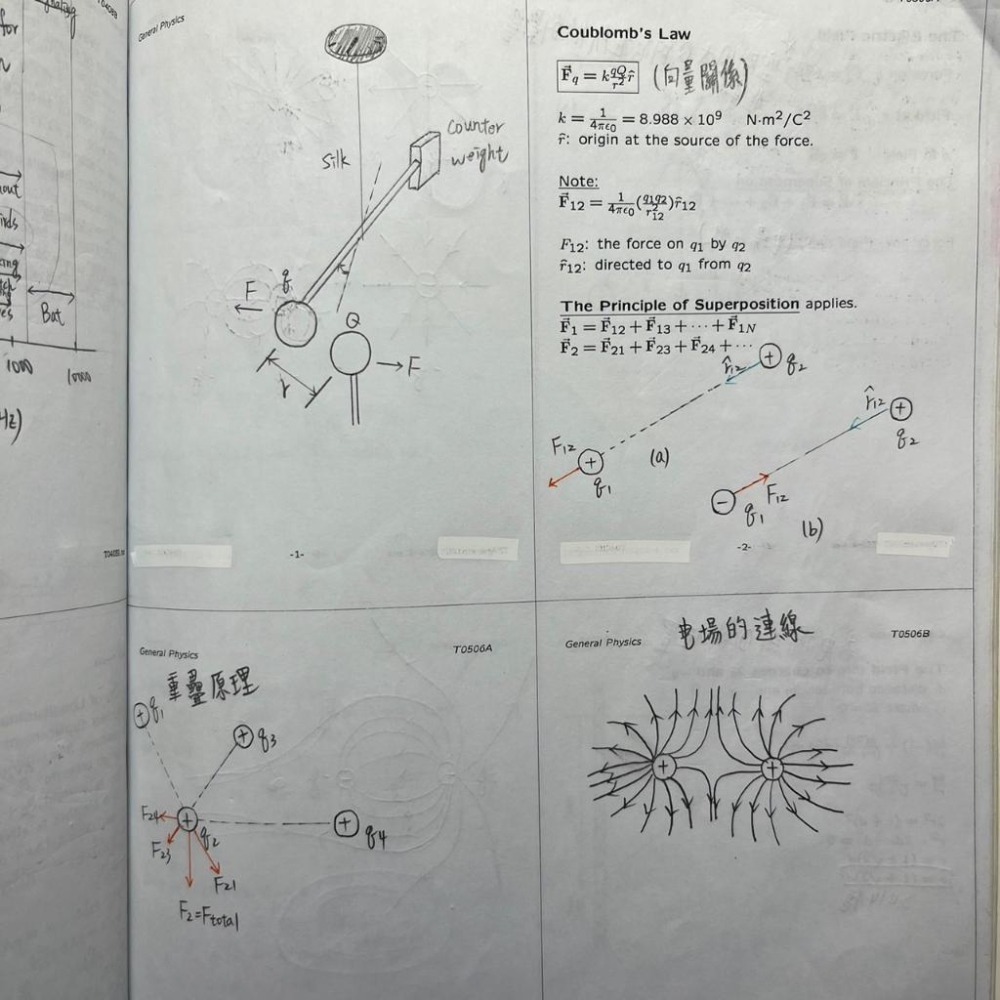 for
1000
10000
Bat
Hz)
General Physics
Silk
Counter
weight
F
q
Q
F
r
-1-
Coublomb's Law
F⃗q = k qQ/r² r̂ (向量關係)
k = 1/4πϵ0 = 8.988 × 10⁹ N·m²/C²
r̂: origin at the source of the force.
Note:
F⃗12 = 1/4πϵ0 (q1q2/r²12) r̂12
F12: the force on q1 by q2
r̂12: directed to q1 from q2
The Principle of Superposition applies.
F⃗1 = F⃗12 + F⃗13 + ··· + F⃗1N
F⃗2 = F⃗21 + F⃗23 + F⃗24 + ···
r̂12 + q2
F12 + q1 (a)
r̂12 + q2
− q1 F12 (b)
-2-
General Physics T0506A
重疊原理
+ q1
+ q3
F24 + q2 + q4
F23
F21
F2=Ftotal
General Physics 电場的連線 T0506B
+ +